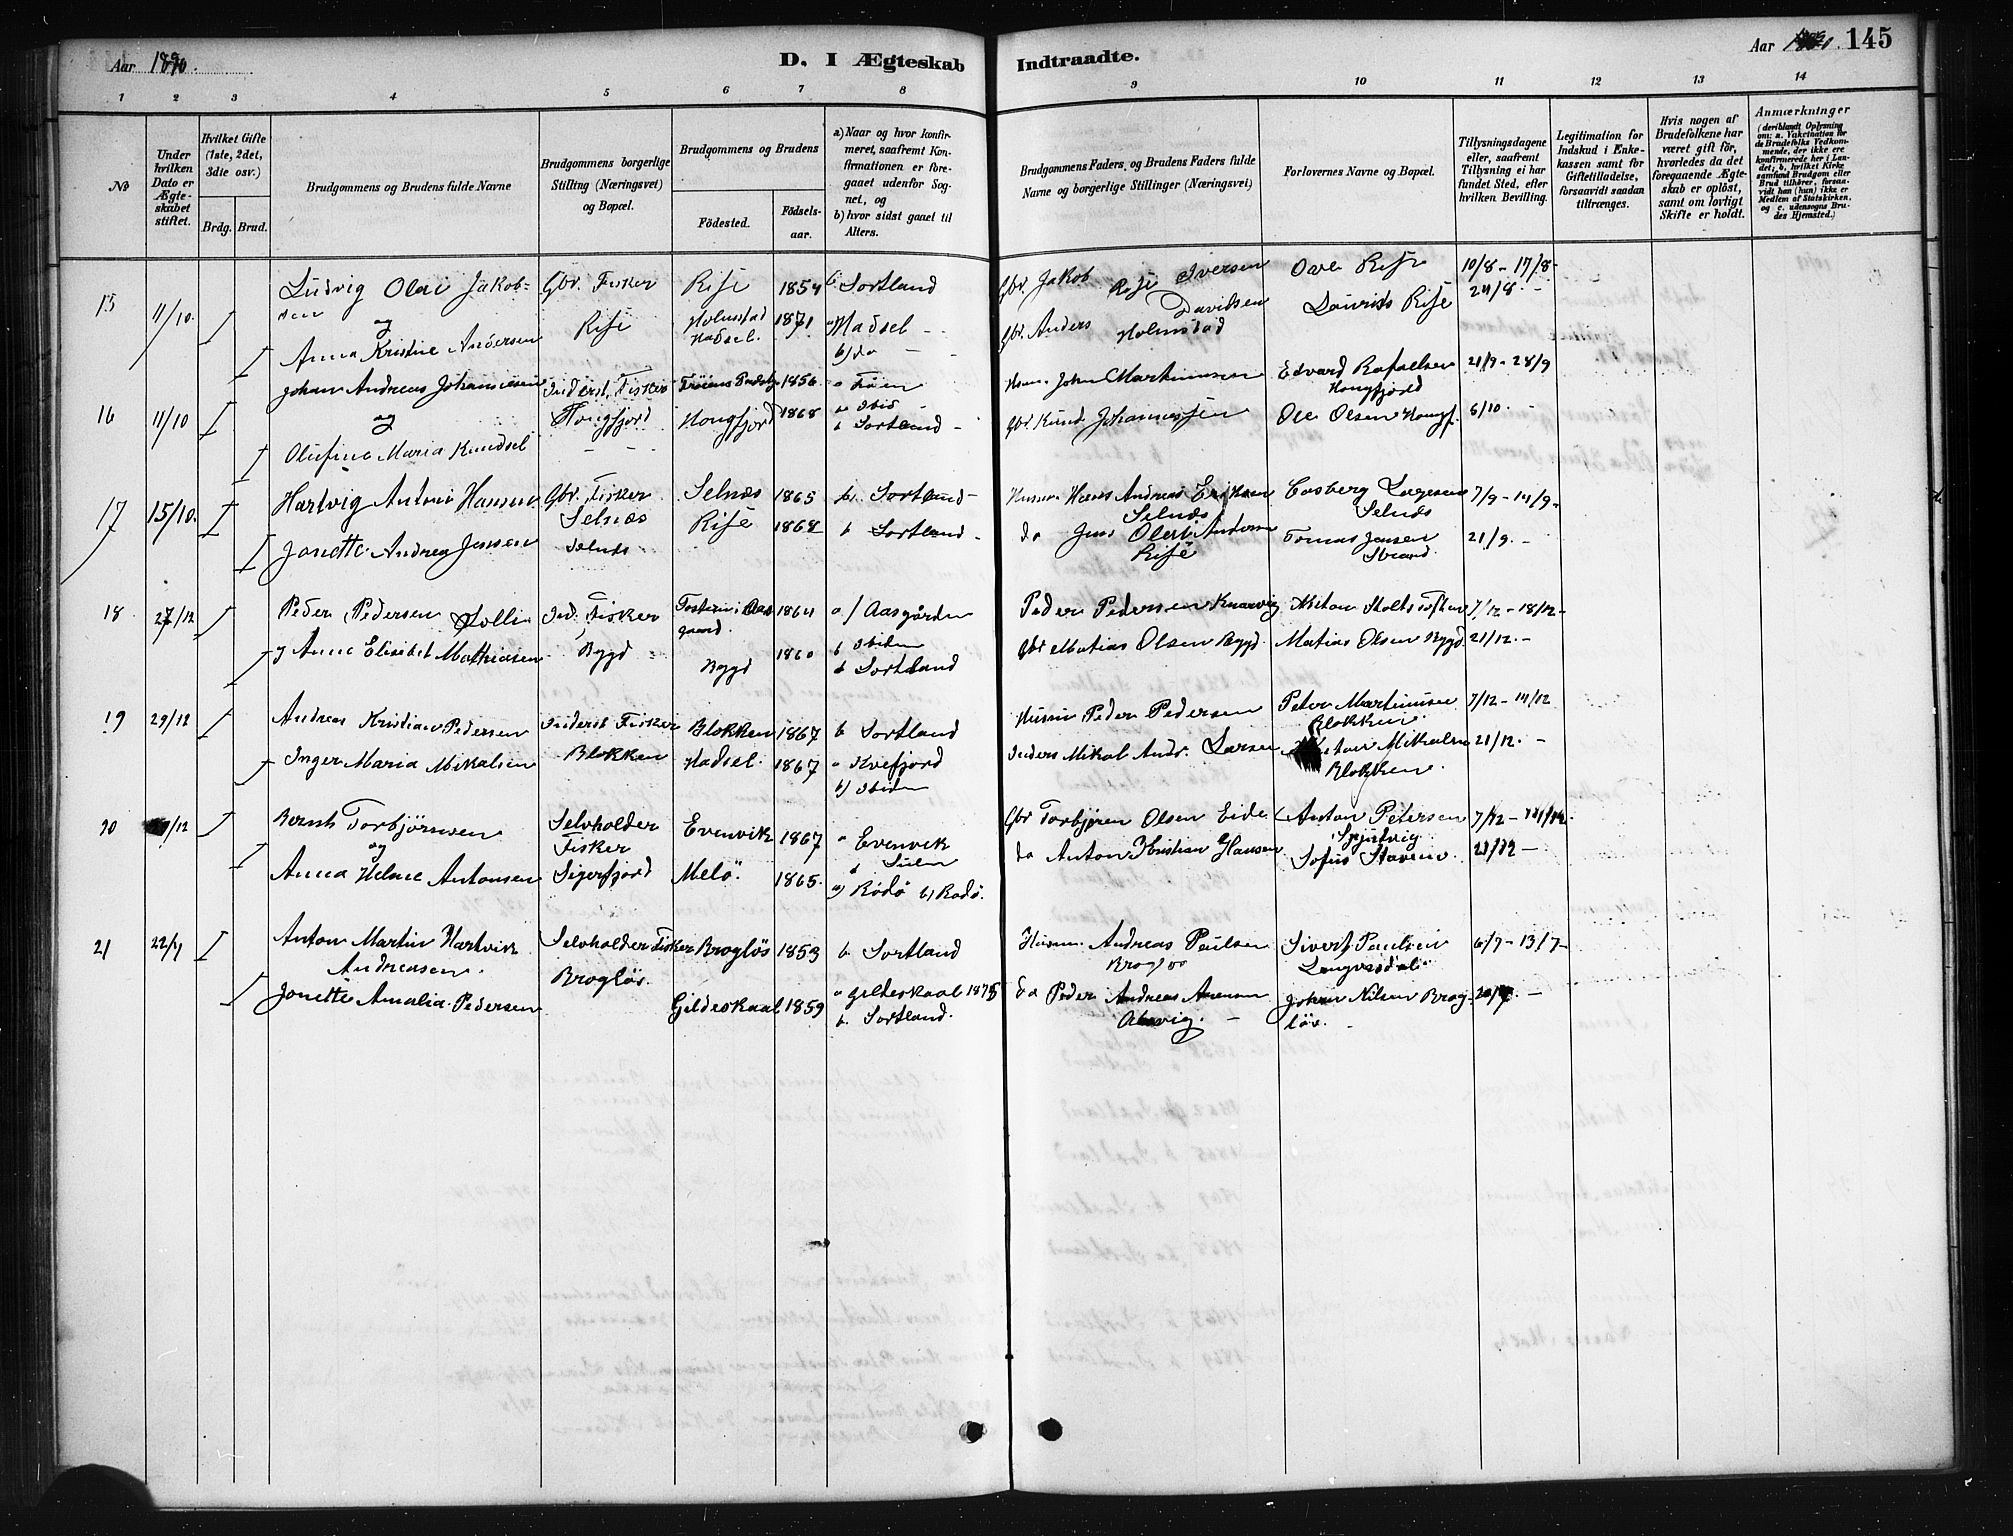 Aar 1890.
D. I Ægteskab Indtraadte.
Aar 145
1 2 3 4 5 6 7 8 9 10 11 12 13 14
No
Under hvilken Dato er Ægteskabet stiftet.
Hvilket Gifte (1ste, 2det, 3die osv.)
Brdg. Brud.
Brudgommens og Brudens fulde Navne
Brudgommens borgerlige Stilling (Næringsvei) og Bopæl.
Brudgommens og Brudens
Födested. Födselsaar.
a) Naar og hvor konfirmeret, saafremt Konfirmationen er foregaaet udenfor Sognet, og
b) hvor sidst gaaet til Alters.
Brudgommens Faders og Brudens Faders fulde Navne og borgerlige Stillinger (Næringsvei)
Forlovernes Navne og Bopæl.
Tillysningsdagene eller, saafremt Tillysning ei har fundet Sted, efter hvilken Bevilling.
Legitimation for Indskud i Enkekassen samt for Giftetilladelse, forsaavidt saadan tiltrænges.
Hvis nogen af Brudefolkene har været gift för, hvorledes da det foregaaende Ægteskab er oplöst, samt om lovligt Skifte er holdt.
Anmærkninger
(deriblandt Oplysning om: a. Vakcination for de Brudefolks Vedkommende, der ikke ere konfirmerede her i Landet; b. hvilket Kirkesamfund Brudgom eller Brud tilhörer, forsaavidt han (hun) ikke er Medlem af Statskirken, og c. udensogns Brudes Hjemsted.)
15 11/10. 1 Ludvig Olai Jakobsen Gbr. Fisker Rise 1854 b Sortland Gbr. Jakob Iversen Rise Ove Rise 10/8 - 17/8 -
og Rise
1 Anna Kristine Andersen Holmstad Hadsel. 1871 a Hadsel - b) do Gbr. Anders Davidsen Holmstad Laurits Rise 24/8. -
16 11/10 1 Johan Andreas Johannesen Inderst, Fisker 1856 Hsm. John Martinussen Edvard Rafaelsen Hongfjord 21/9 - 28/9
og Hongfjord
1 Olufine Maria Knudsel Hongfjord 1868 b Sortland - Gbr Knud Johannessen Ole Olsen Hongf. 5/10. -
17 15/10. 1 Hartvig Antoni Hansen Gbr. Fisker Selnæs Selnæs 1865 b. Sortland - Husm. Hans Andreas Eriksen Selnæs Selnæs 7/9 - 14/9 -
1 Jonette Andrea Jensen Selnæs Rise 1868 b Sortland - do Jens Olert Andersen Rise Tomas Jensen Strand 21/9. -
18 27/12 1 Peder Pedersen Solli Ind. Fisker 1864 a) Aasgården b ibidem Peder Pedersen Knarvig 7/12 - 18/12 -
1 Anne Elisebet Mathiasen Bygd Bygd 1860 b Sortland Gbr Matias Olsen Bygd Matias Olsen Bygd 21/12. -
19 29/12 1 Andreas Kristian Pedersen Inderst Fisker Blokken 1867 b Sortland Husm Peder Pedersen Peter Martinusen Blokken 7/12 - 14/12
1 Inger Maria Mikalsen Blokken Hadsel. 1867 a Kvefjord b) ibidem Inders Mikal Andr. Larsen Mikalsen Blokken. 21/12. -
20 1 Bernt Torbjörnsen Selvholder Fisker Evenvik 1867 a Evenvik Gbr Torbjören Olsen Eide Anton Petersen 7/12 -
og
1 Anna Helene Antonsen Sigerfjord Melö. 1865. a) Rödö b) Rödö. do Anton Kristian Hansen Sofus 21/12 -
21 22/7 1 Anton Martin Hartvik Andreasen. Selvholder Fisker Broglös. Broglös 1853 b. Sortland Husm. Andreas Paulsen Sivert Paulsen 6/7 - 13/7 -
1 Jonette Amalia Pedersen Gildeskaal 1859 a Gildeskaal 1875 b. Sortland. do Peder Andreas Johan Nilsen Broglös. 20/7. -